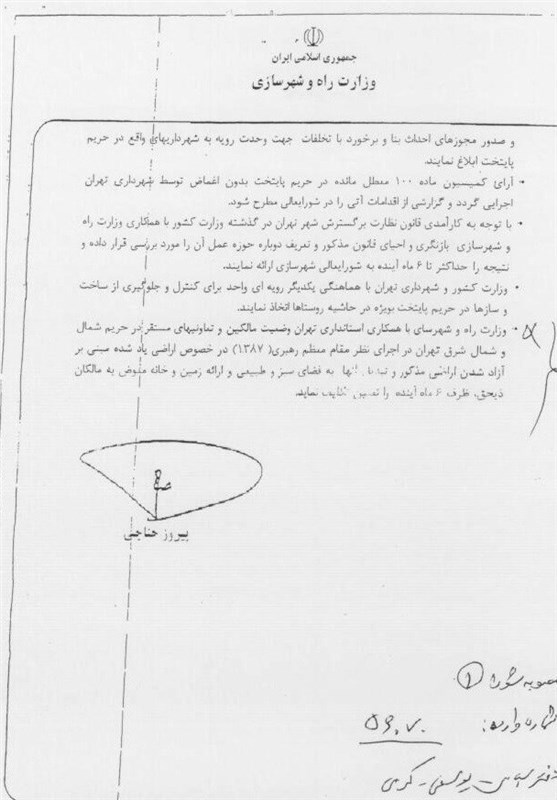 جمهوری اسلامی ایران
وزارت راه و شهرسازی
و صدور مجوزهای احداث بنا و برخورد با تخلفات جهت وحدت رویه به شهرداریهای واقع در حریم
پایتخت ابلاغ نمایند.
• آرای کمیسیون ماده ۱۰۰ معطل مانده در حریم پایتخت بدون اغماض توسط شهرداری تهران
اجرایی گردد و گزارشی از اقدامات آتی را در شورایعالی مطرح شود.
• با توجه به کارآمدی قانون نظارت برگسترش شهر تهران در گذشته وزارت کشور با همکاری وزارت راه
و شهرسازی بازنگری و احیای قانون مذکور و تعریف دوباره حوزه عمل آن را مورد بررسی قرار داده و
نتیجه را حداکثر تا ۶ ماه آینده به شورایعالی شهرسازی ارائه نمایند.
• وزارت کشور و شهرداری تهران با هماهنگی یکدیگر رویه ای واحد برای کنترل و جلوگیری از ساخت
و سازها در حریم پایتخت بویژه در حاشیه روستاها اتخاذ نمایند.
• وزارت راه و شهرسای با همکاری استانداری تهران وضعیت مالکین و تعاونیهای مستقر در حریم شمال
و شمال شرق تهران در اجرای نظر مقام معظم رهبری( ۱۳۸۷) در خصوص اراضی یاد شده مبنی بر
آزاد شدن اراضی مذکور و به فضای سبز و طبیعی و ارائه زمین و خانه معوض به مالکان
ذیحق، ظرف ۶ ماه آینده را تعیین تکلیف نماید.
پیروز حناچی
مصوبه شورا ①
شماره وارده: ۵۶۰۷۰